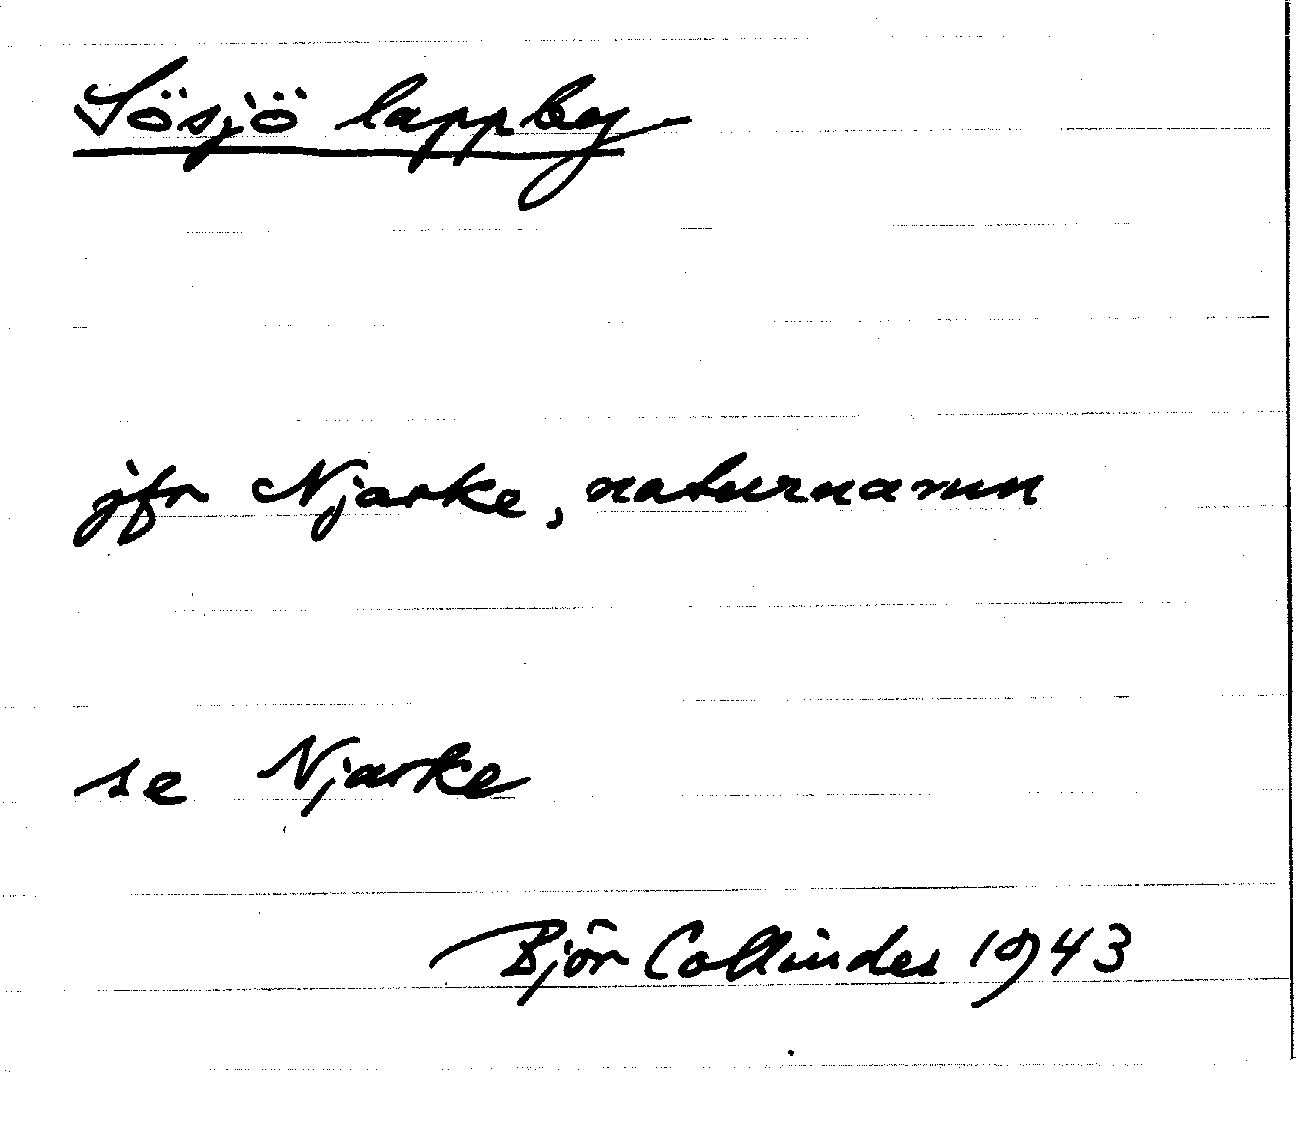 Sösjö lappby
jfr Njarke, naturnamn
se Njarke
Björn Collinder 1943